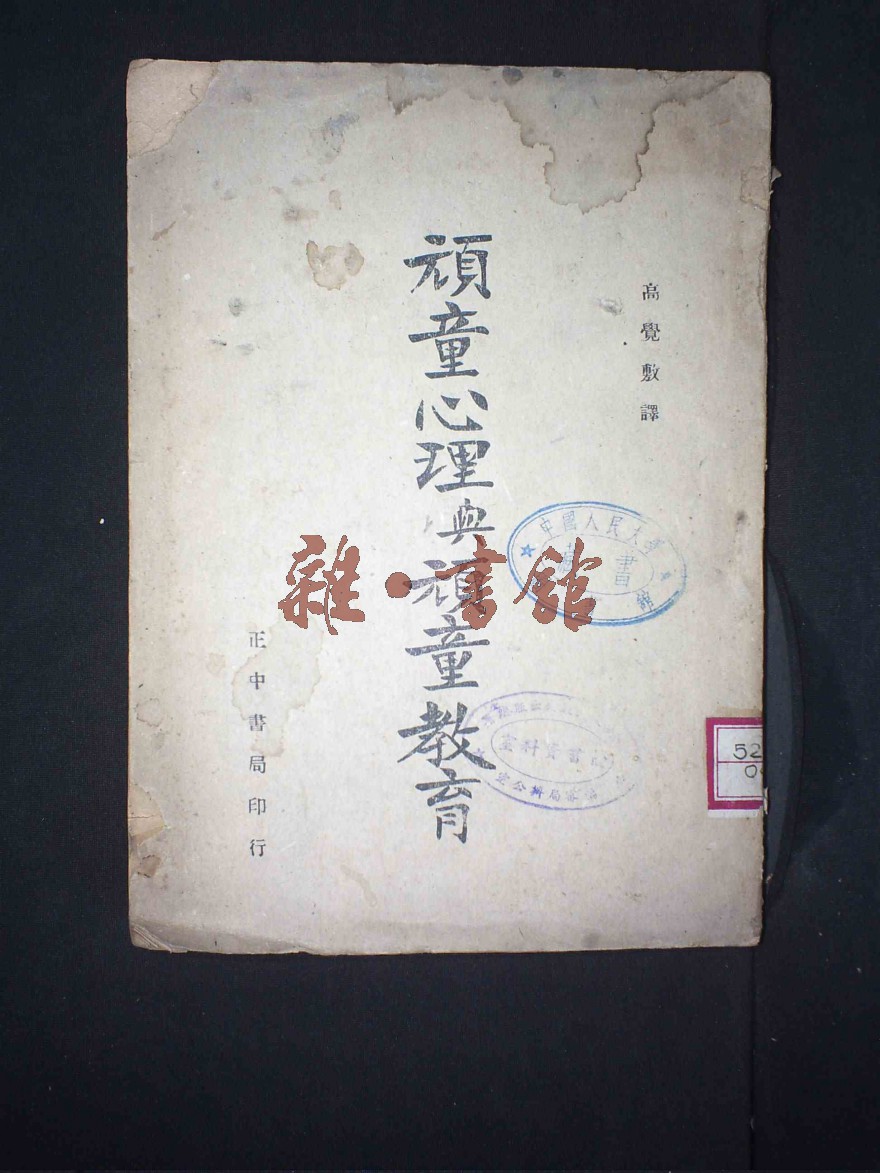 高覺敷譯
頑童心理與頑童教育
正中書局印行
雜·書館
中國人民大學
書
資料室
局辦公室
52